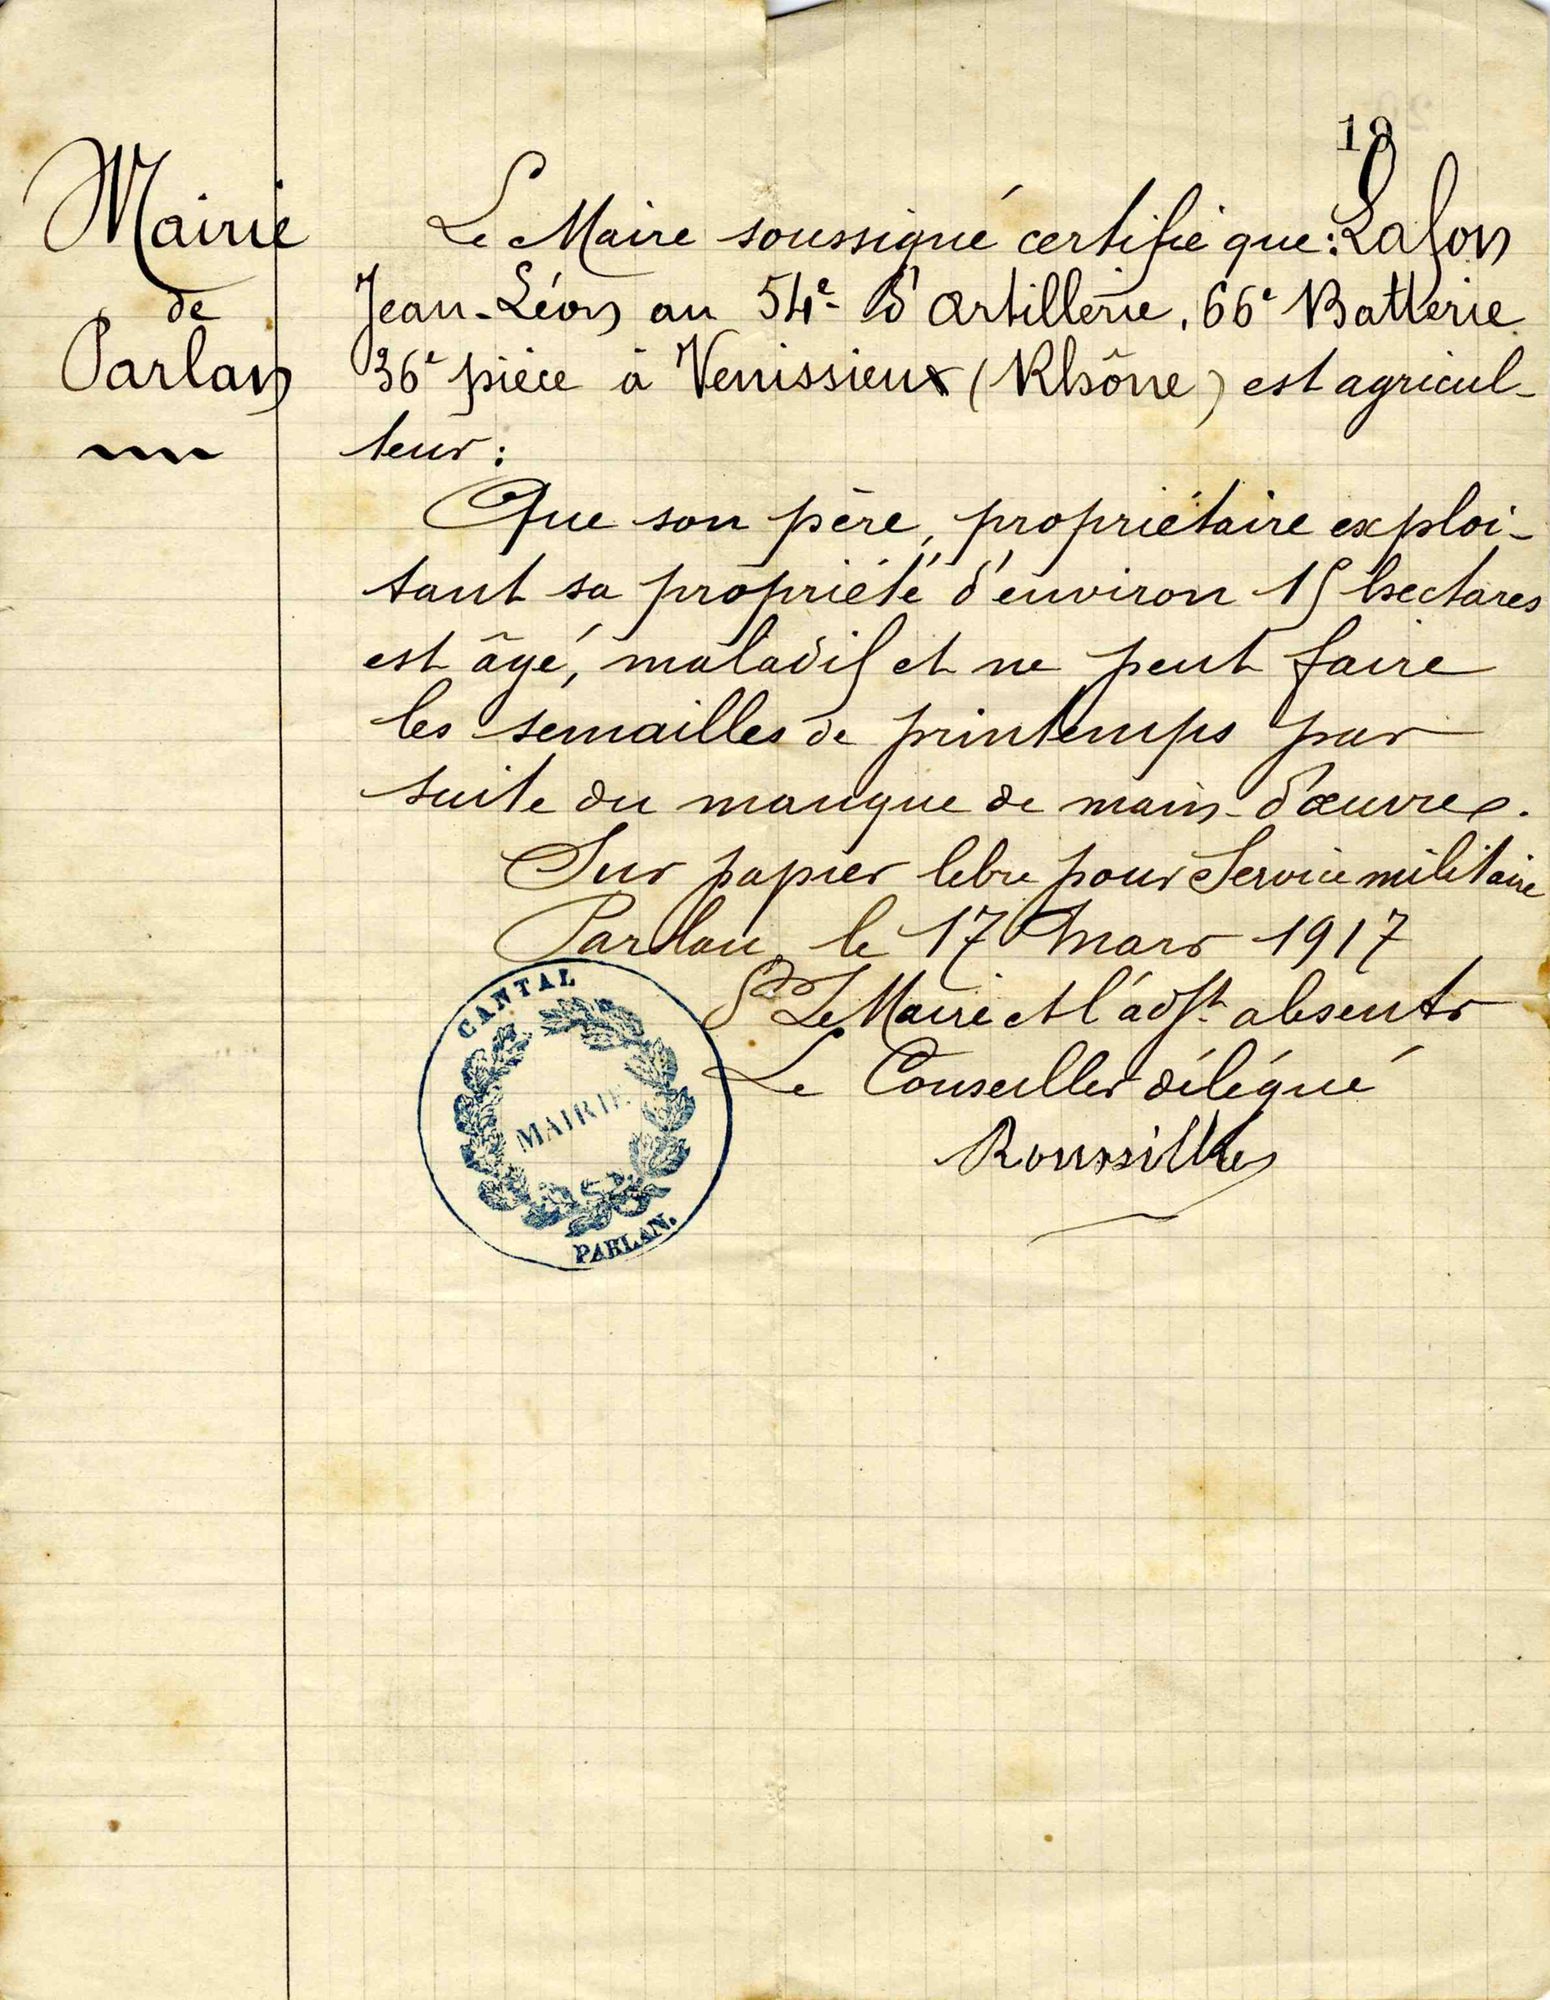 18
Mairie
de
Parlan
Le Maire soussigné certifie que: Lafon
Jean-Léon au 54e d'artillerie, 66e Batterie
36e pièce à Venissieux (Rhône) est agricul-
teur:
Que son père, propriétaire exploi-
tant sa propriété d'environ 15 hectares
est âgé, maladif et ne peut faire
les semailles de printemps par
suite du manque de main-d'œuvre.
Sur papier libre pour Service militaire
Parlan, le 17 Mars 1917
Pr Le Maire et l'adjt absents
Le Conseiller délégué
CANTAL
MAIRIE
PARLAN.